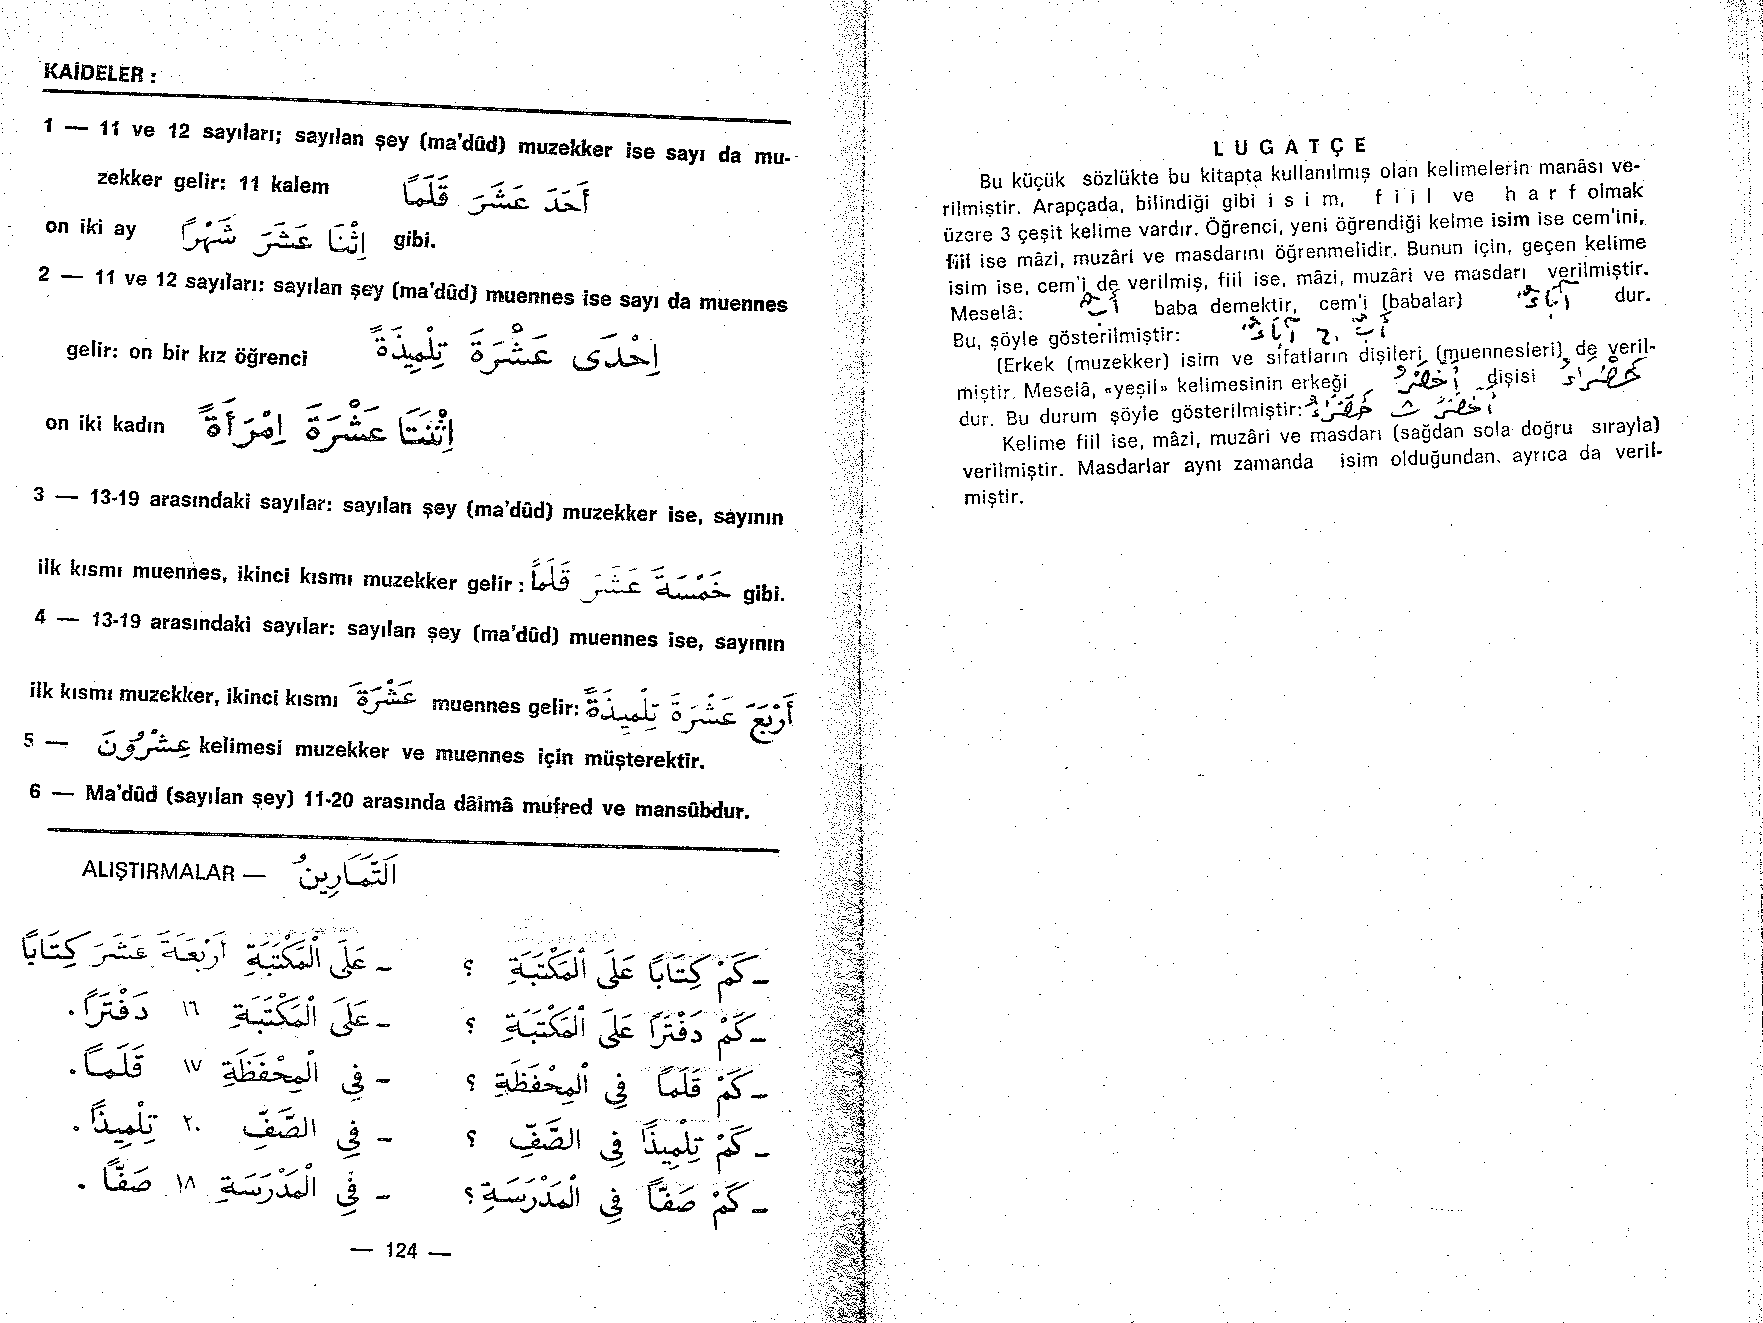 KAİDELER :
1 — 11 ve 12 sayıları; sayılan şey (ma'dûd) muzekker ise sayı da mu-
zekker gelir: 11 kalem أَحَدَ عَشَرَ قَلَمًا
on iki ay اِثْنَا عَشَرَ شَهْرًا gibi.
2 — 11 ve 12 sayıları: sayılan şey (ma'dûd) muennes ise sayı da muennes
gelir: on bir kız öğrenci اِحْدَى عَشْرَةَ تِلْمِيذَةً
on iki kadın اِثْنَتَا عَشْرَةَ اِمْرَأَةً
3 — 13-19 arasındaki sayılar: sayılan şey (ma'dûd) muzekker ise, sayının
ilk kısmı muennes, ikinci kısmı muzekker gelir : خَمْسَةَ عَشَرَ قَلَمًا gibi.
4 — 13-19 arasındaki sayılar: sayılan şey (ma'dûd) muennes ise, sayının
ilk kısmı muzekker, ikinci kısmı عَشْرَةَ muennes gelir: أَرْبَعَ عَشْرَةَ تِلْمِيذَةً
5 — عِشْرُونَ kelimesi muzekker ve muennes için müşterektir.
6 — Ma'dûd (sayılan şey) 11-20 arasında dâimâ mufred ve mansûbdur.
ALIŞTIRMALAR — اَلتَّمَارِينُ
- كَمْ كِتَابًا عَلَى الْمَكْتَبَةِ ؟ - عَلَى الْمَكْتَبَةِ أَرْبَعَةَ عَشَرَ كِتَابًا
- كَمْ دَفْتَرًا عَلَى الْمَكْتَبَةِ ؟ - عَلَى الْمَكْتَبَةِ ١٦ دَفْتَرًا .
- كَمْ قَلَمًا فِي الْمِحْفَظَةِ ؟ - فِي الْمِحْفَظَةِ ١٧ قَلَمًا .
- كَمْ تِلْمِيذًا فِي الصَّفِّ ؟ - فِي الصَّفِّ ٢٠ تِلْمِيذًا .
- كَمْ صَفًّا فِي الْمَدْرَسَةِ ؟ - فِي الْمَدْرَسَةِ ١٨ صَفًّا .
— 124 —
LUGATÇE
Bu küçük sözlükte bu kitapta kullanılmış olan kelimelerin manâsı ve-
rilmiştir. Arapçada, bilindiği gibi i s i m, f i i l ve h a r f olmak
üzere 3 çeşit kelime vardır. Öğrenci, yeni öğrendiği kelme isim ise cem'ini,
fiil ise mâzi, muzâri ve masdarını öğrenmelidir. Bunun için, geçen kelime
isim ise, cem'i de verilmiş, fiil ise, mâzi, muzâri ve masdarı verilmiştir.
Meselâ: أَبٌ baba demektir, cem'i (babalar) آبَاءٌ dur.
Bu, şöyle gösterilmiştir: أَبٌ ج. آبَاءٌ
(Erkek (muzekker) isim ve sıfatların dişileri (muennesleri) de veril-
miştir. Meselâ, «yeşil» kelimesinin erkeği أَخْضَرُ dişisi خَضْرَاءُ
dur. Bu durum şöyle gösterilmiştir: أَخْضَرُ ث خَضْرَاءُ
Kelime fiil ise, mâzi, muzâri ve masdarı (sağdan sola doğru sırayla)
verilmiştir. Masdarlar aynı zamanda isim olduğundan, ayrıca da veril-
miştir.